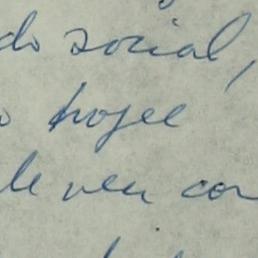 do social,
o projec
le veu con